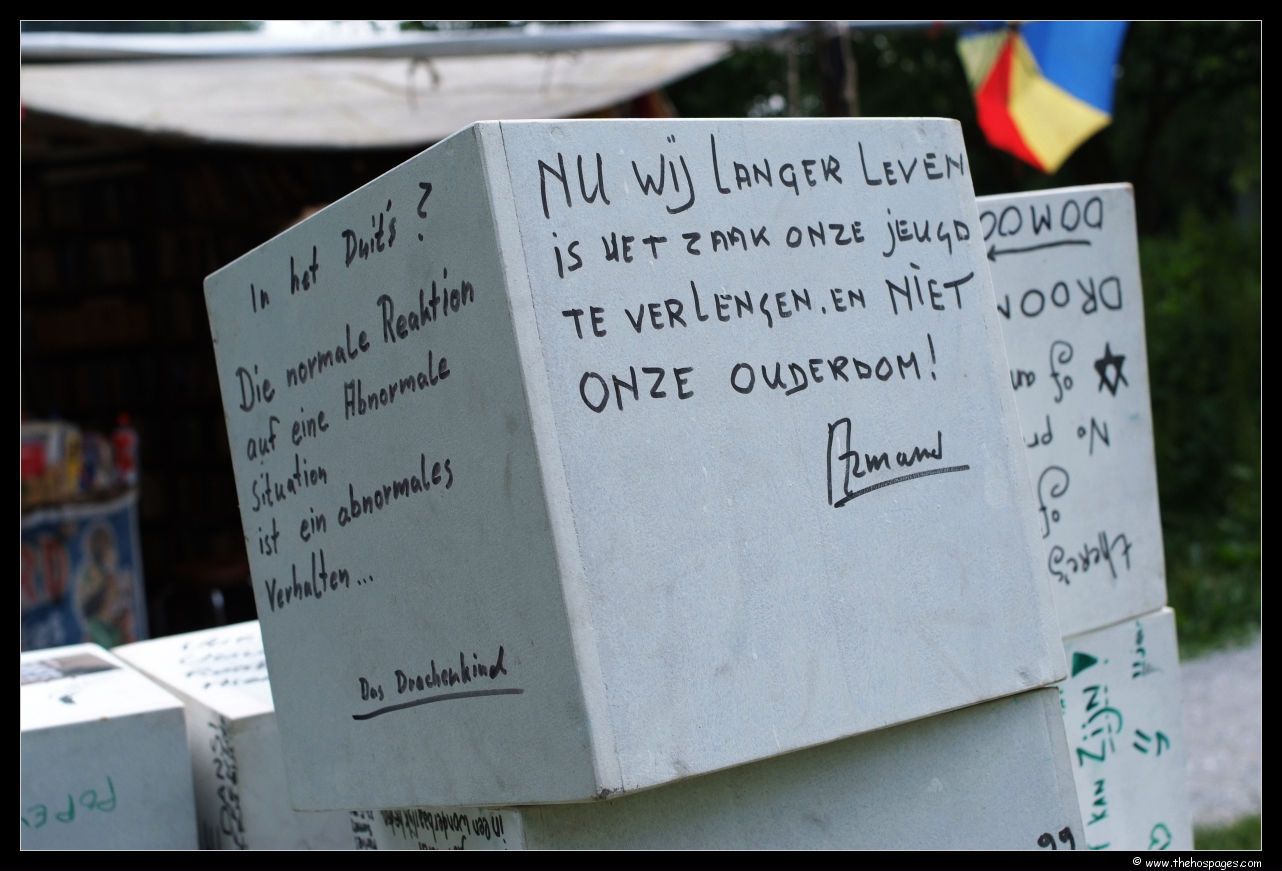 In het Duits?
Die normale Reaktion
auf eine Abnormale
Situation
ist ein abnormales
Verhalten...
Das Drachenkind
NU WIJ LANGER LEVEN
is HET ZAAK ONZE JEUGD
TE VERLENGEN. EN NIET
ONZE OUDERDOM!
Armand
there's
of
No
of
DROOM
DOMOO
KAN ZijN!
POPEY
in een wonder
99
© www.thehospages.com